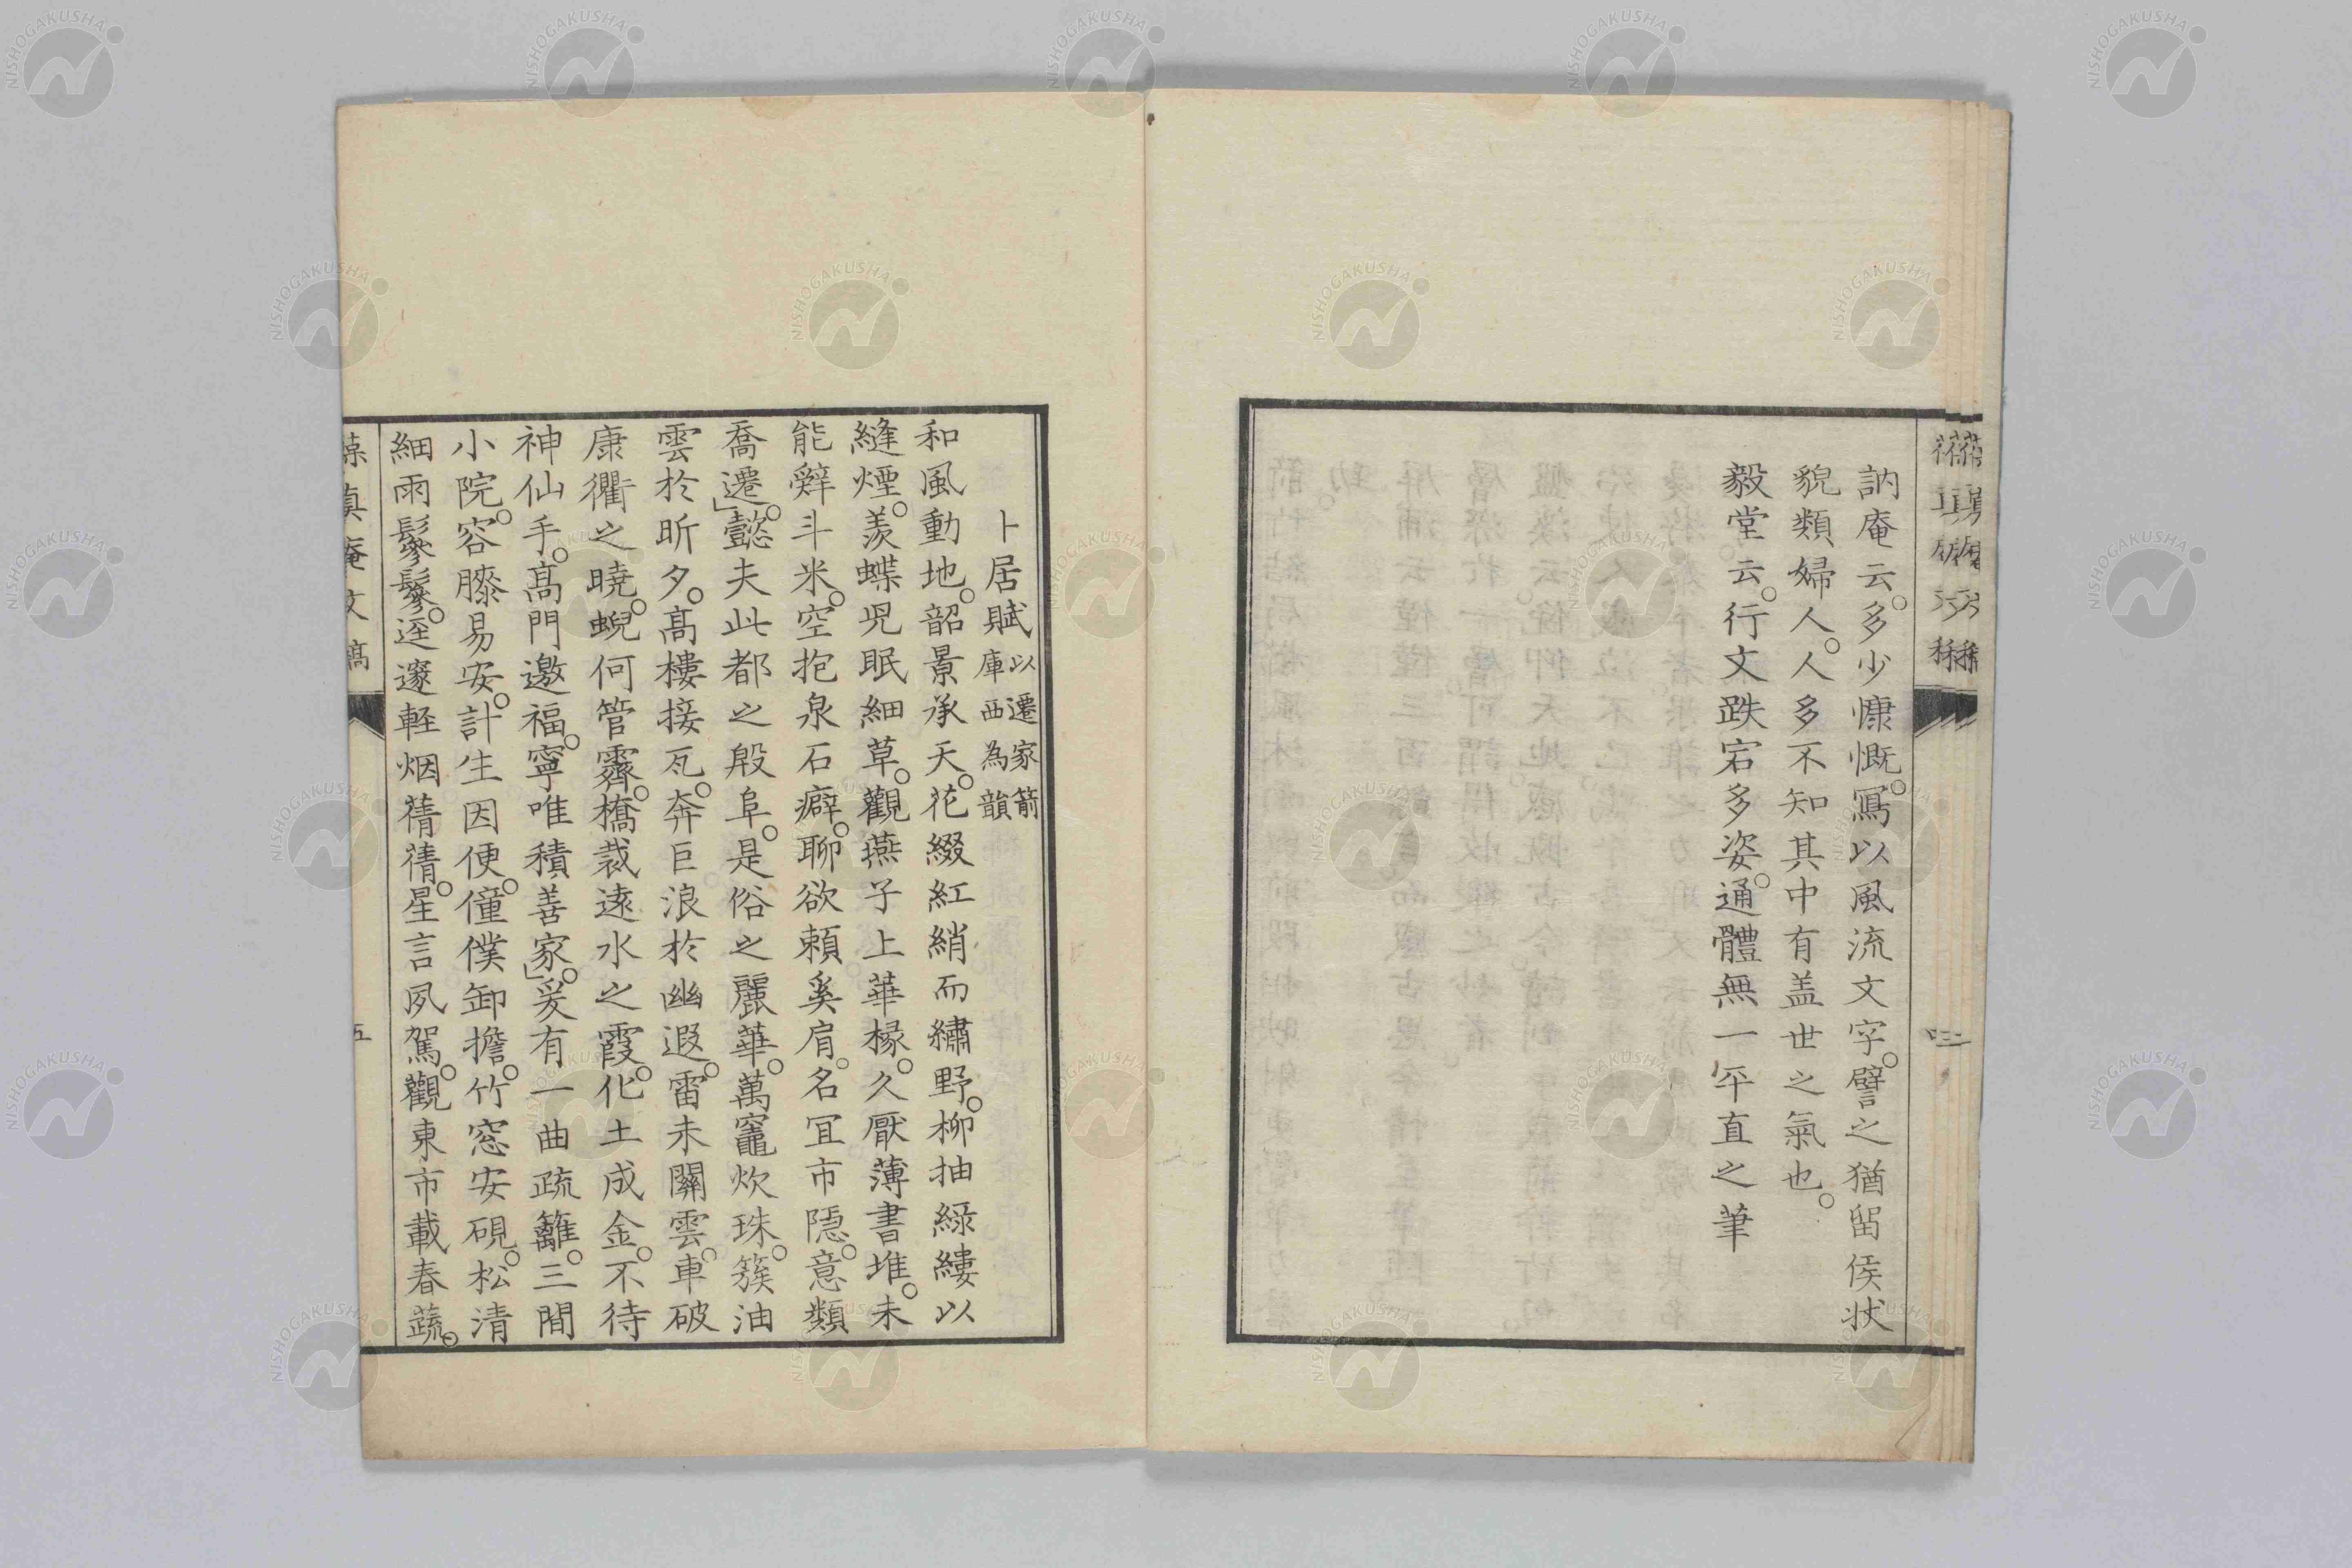 訥庵云。多少慷慨。寫以風流文字。譬之猶留侯狀
貌類婦人。人多不知其中有盖世之氣也。
毅堂云。行文跌宕多姿。通體無一平直之筆
卜居賦以遷家箭
庫西為韻
和風動地。韶景承天。花綴紅綃而繡野。柳抽綠縷以
縫煙。羡蝶児眠細草。觀燕子上華椽。久厭薄書堆。未
能辭斗米。空抱泉石癖。聊欲頼奚肩。名冝市隠。意類
喬遷。」懿夫此都之殷阜。是俗之麗華。萬竈炊珠。簇油
雲於昕夕。髙樓接瓦。奔巨浪於幽遐。雷未關雲。車破
康衢之曉。蜺何管霽。橋裁遠水之霞。化土成金。不待
神仙手。髙門邀福。寧唯積善家。」爰有一曲疏籬。三間
小院。容膝易安。計生因便。僮僕卸擔。竹窓安硯。松清
細雨鬖鬖。逕邃軽烟蒨蒨。星言夙駕。觀東市載春蔬。
真庵文稿
五
NISHOGAKUSHA